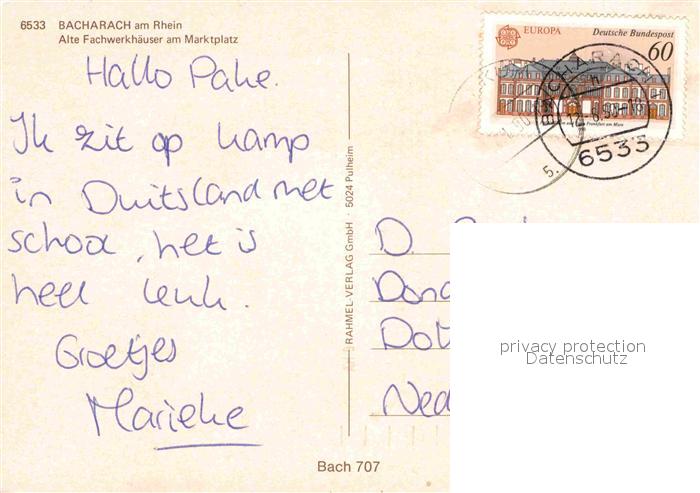 6533 BACHARACH am Rhein
Alte Fachwerkhäuser am Marktplatz
Hallo Pake.
Ik zit op kamp
in Duitsland met
school, het is
heel leuk.
Groetjes
Marieke
RAHMEL-VERLAG GmbH · 5024 Pulheim
Bach 707
EUROPA
Deutsche Bundespost
60
Frankfurt am Main
BACHARACH
6533
D.
Dona
Dot
Ned
privacy protection
Datenschutz